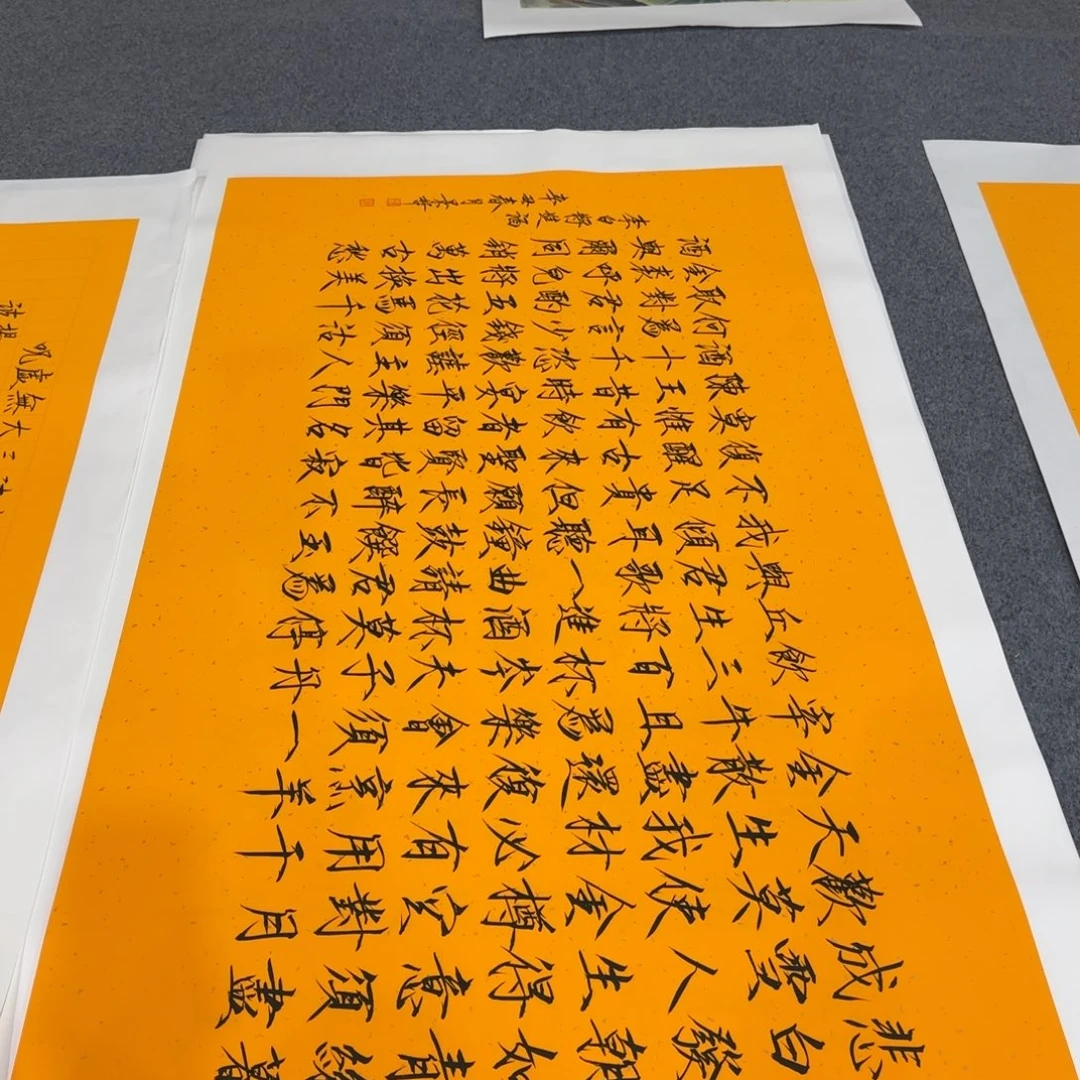 悲白發朝如青絲暮
成雪人生得意須盡
歡莫使金樽空對月
天生我材必有用千
金散盡還復來烹羊
宰牛且爲樂會須一
飲三百杯岑夫子丹
丘生將進酒杯莫停
與君歌一曲請君爲
我傾耳聽鐘鼓饌玉
不足貴但願長醉不
復醒古來聖賢皆寂
寞惟有飲者留其名
陳王昔時宴平樂鬥
酒十千恣歡謔主人
何爲言少錢徑須沽
取對君酌五花馬千
金裘呼兒將出換美
酒與爾同銷萬古愁
李白將進酒
辛丑春月